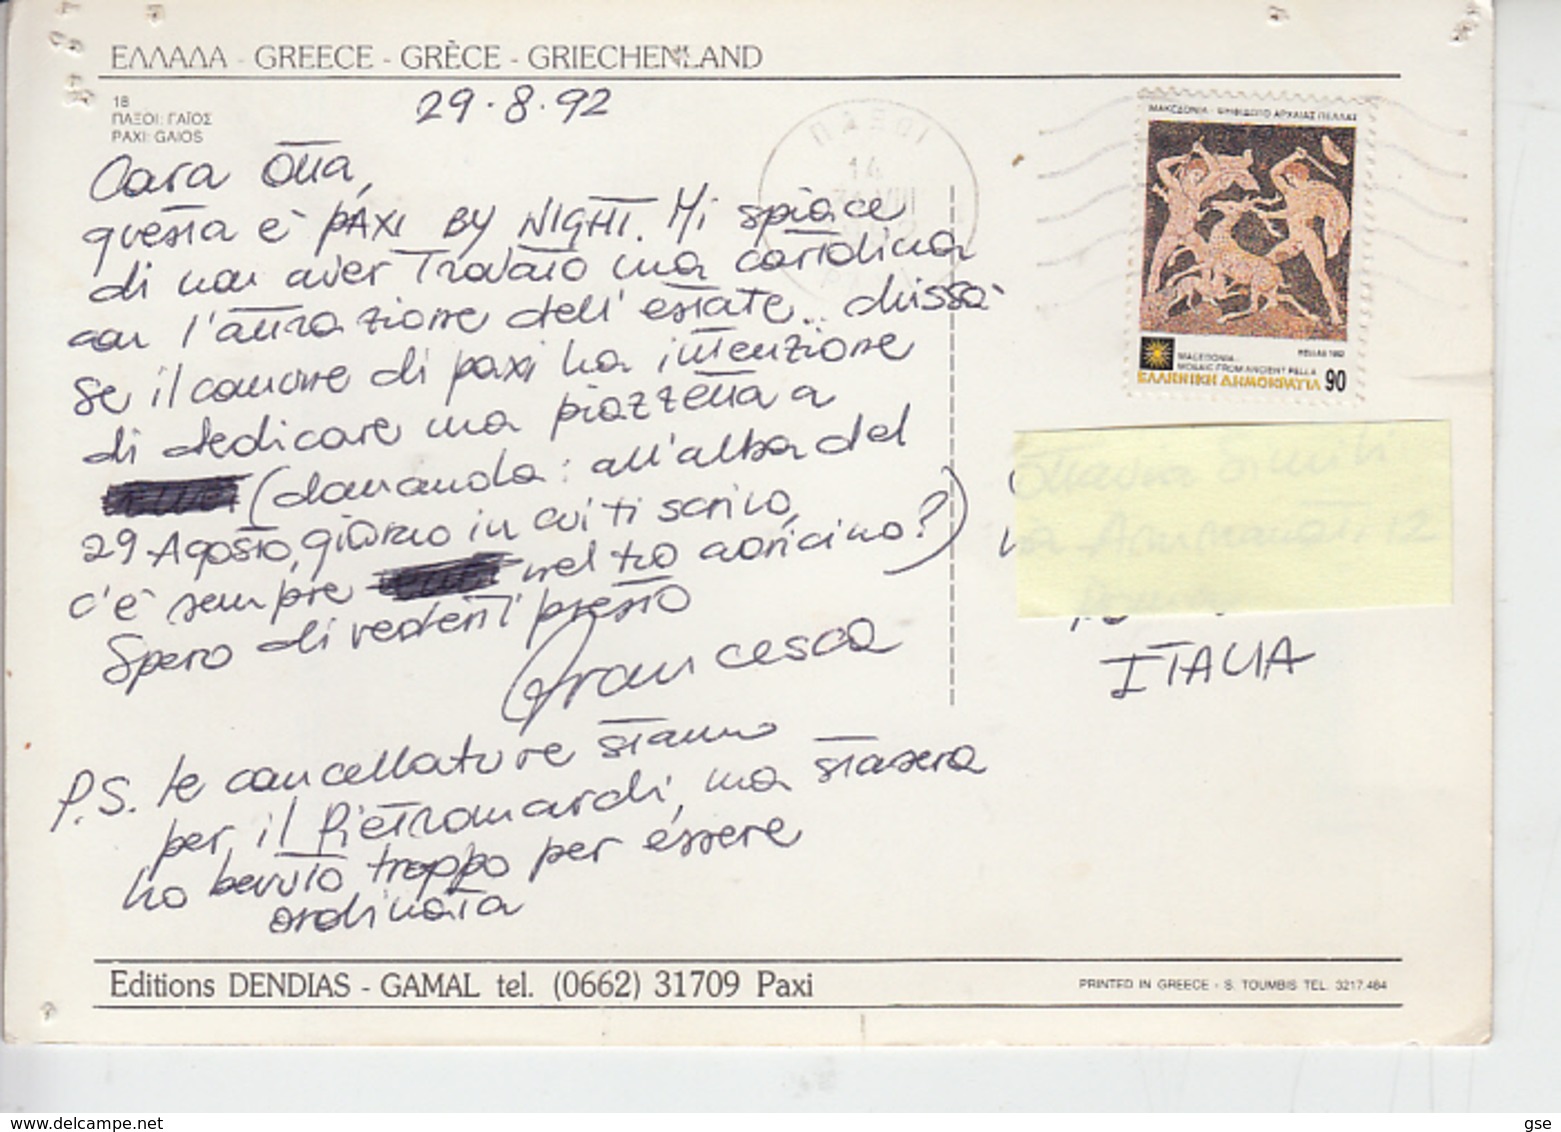 ΕΛΛΑΔΑ - GREECE - GRÈCE - GRIECHENLAND
18
ΠΑΞΟΙ: ΓΑΪΟΣ
PAXI: GAIOS
29.8.92
Cara Otta,
questa è PAXI BY NIGHT. Mi spiace
di non aver trovato una cartolina
con l'attrazione dell'estate.. chissà
se il comune di paxi ha intenzione
di dedicare una piazzetta a
(domanda: all'alba del
29 Agosto, giorno in cui ti scrivo,
c'è sempre nel tuo cuoricino?)
Spero di vederti presto
Francesca
P.S. le cancellature stanno
per il Pietromardi, ma stasera
ho bevuto troppo per essere
ordinata
ΠΑΞΟΙ
14
ΜΑΚΕΔΟΝΙΑ - ΨΗΦΙΔΩΤΟ ΑΡΧΑΙΑΣ ΠΕΛΛΑΣ
HELLAS 1992
MACEDONIA -
MOSAIC FROM ANCIENT PELLA
ΕΛΛΗΝΙΚΗ ΔΗΜΟΚΡΑΤΙΑ 90
ITALIA
Editions DENDIAS - GAMAL tel. (0662) 31709 Paxi
PRINTED IN GREECE - S. TOUMBIS TEL. 3217.464
www.delcampe.net
gse